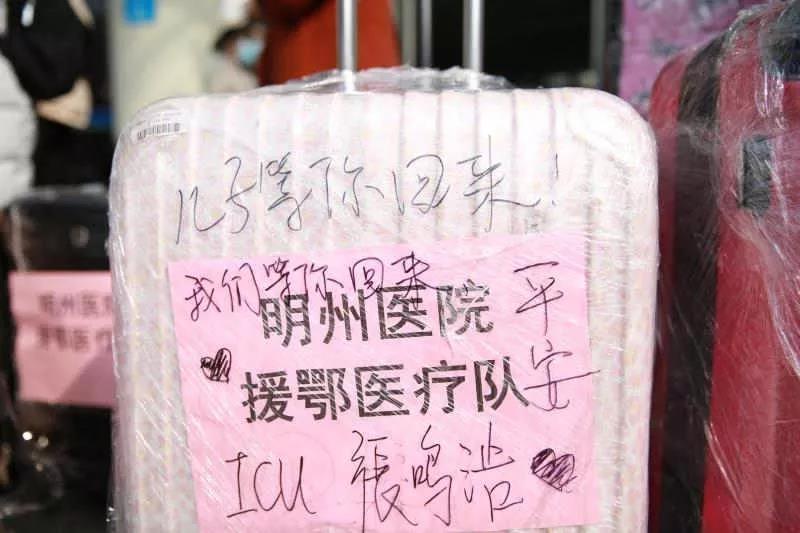 儿子等你回来!
我们等你回来
明州医院
援鄂医疗队
平安
ICU 张鸣浩
明州医
援鄂医疗